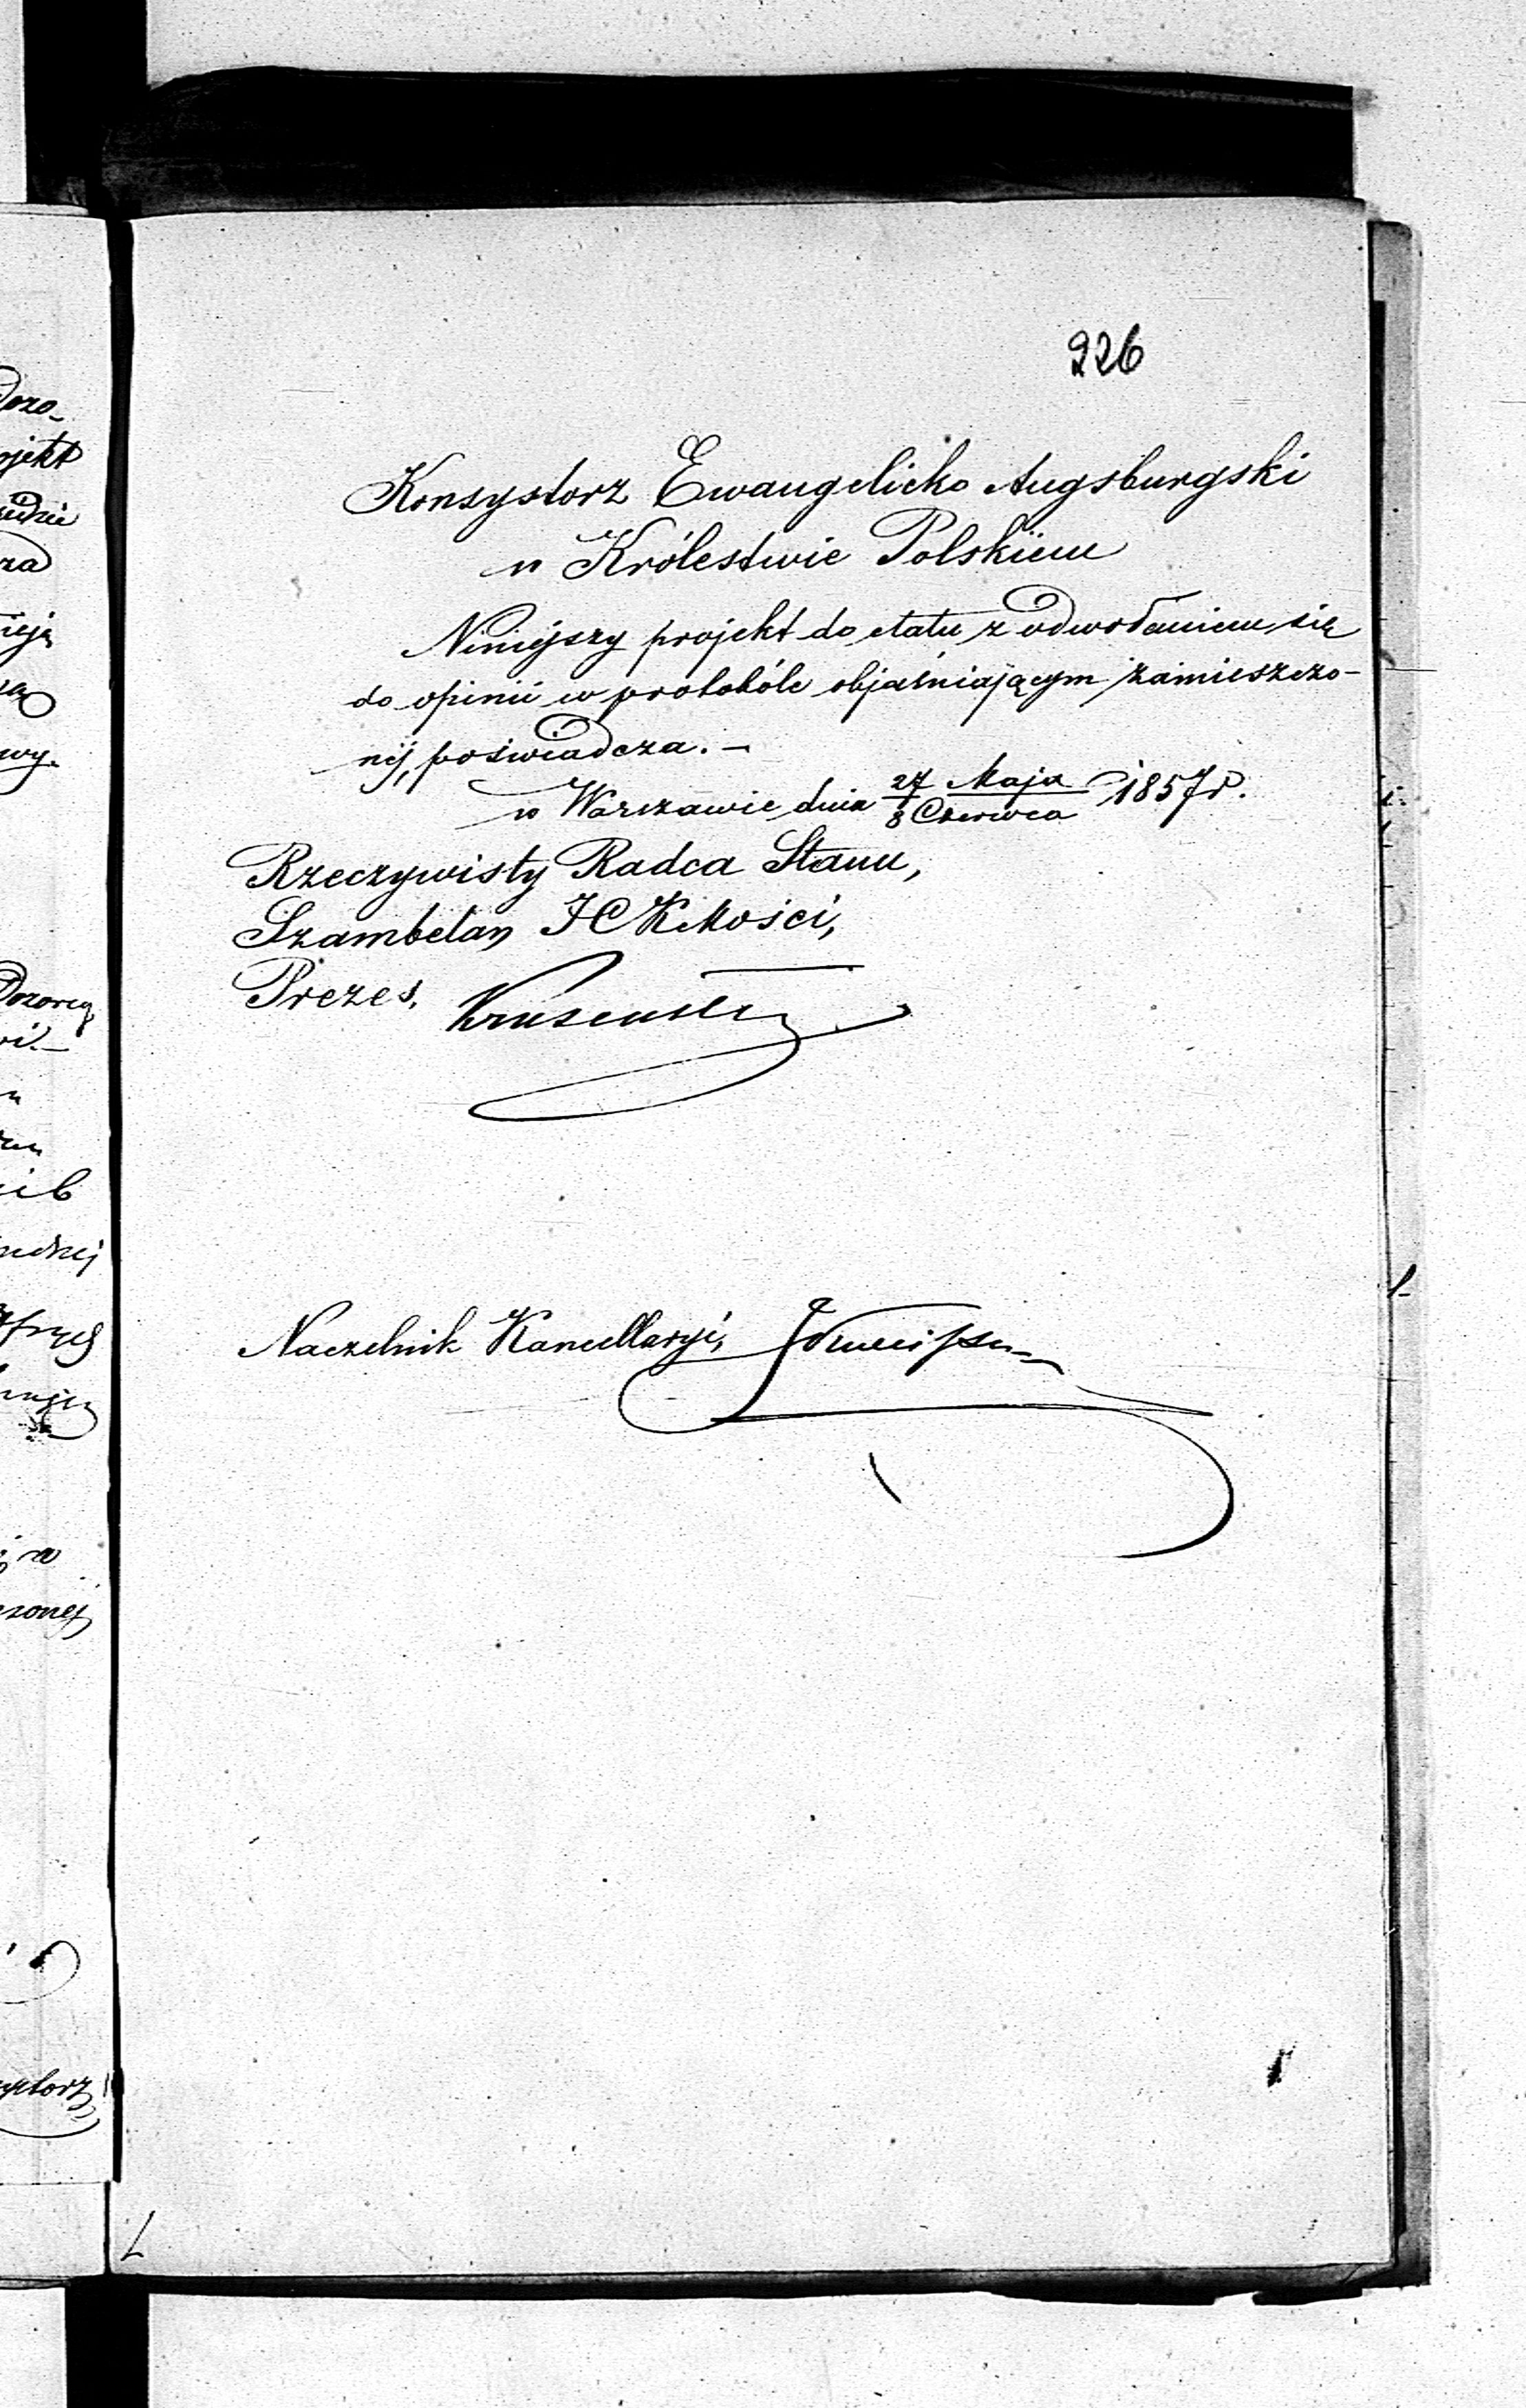 226
Konsystorz Ewangelicko Augsburgski
w Królestwie Polskiém
Niniéjszy projekt do etatu z odwołaniem się
do opinii w protokóle objaśniającym zamieszczo-
néj, poświadcza. —
w Warszawie dnia 27 Maja / 8 Czerwca 1857 r.
Rzeczywisty Radca Stanu,
Szambelan JCKMości,
Prezes,
Naczelnik Kancellaryi,